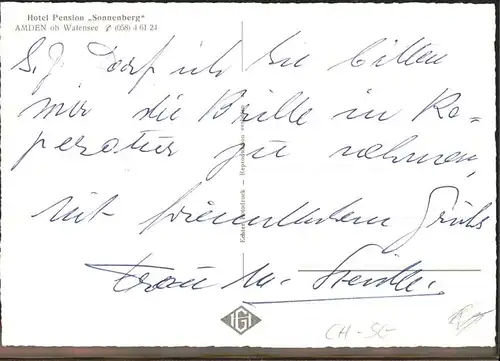 Hotel Pension „Sonnenberg“
AMDEN ob Walensee (058) 4 61 24
S.G. Darf ich Sie bitten
mir die Brille in Re=
peratur zu nehmen,
mit freundlichem Gruss
Frau M.
Echter Photodruck — Reproduktion verboten
IGI
CH-SG